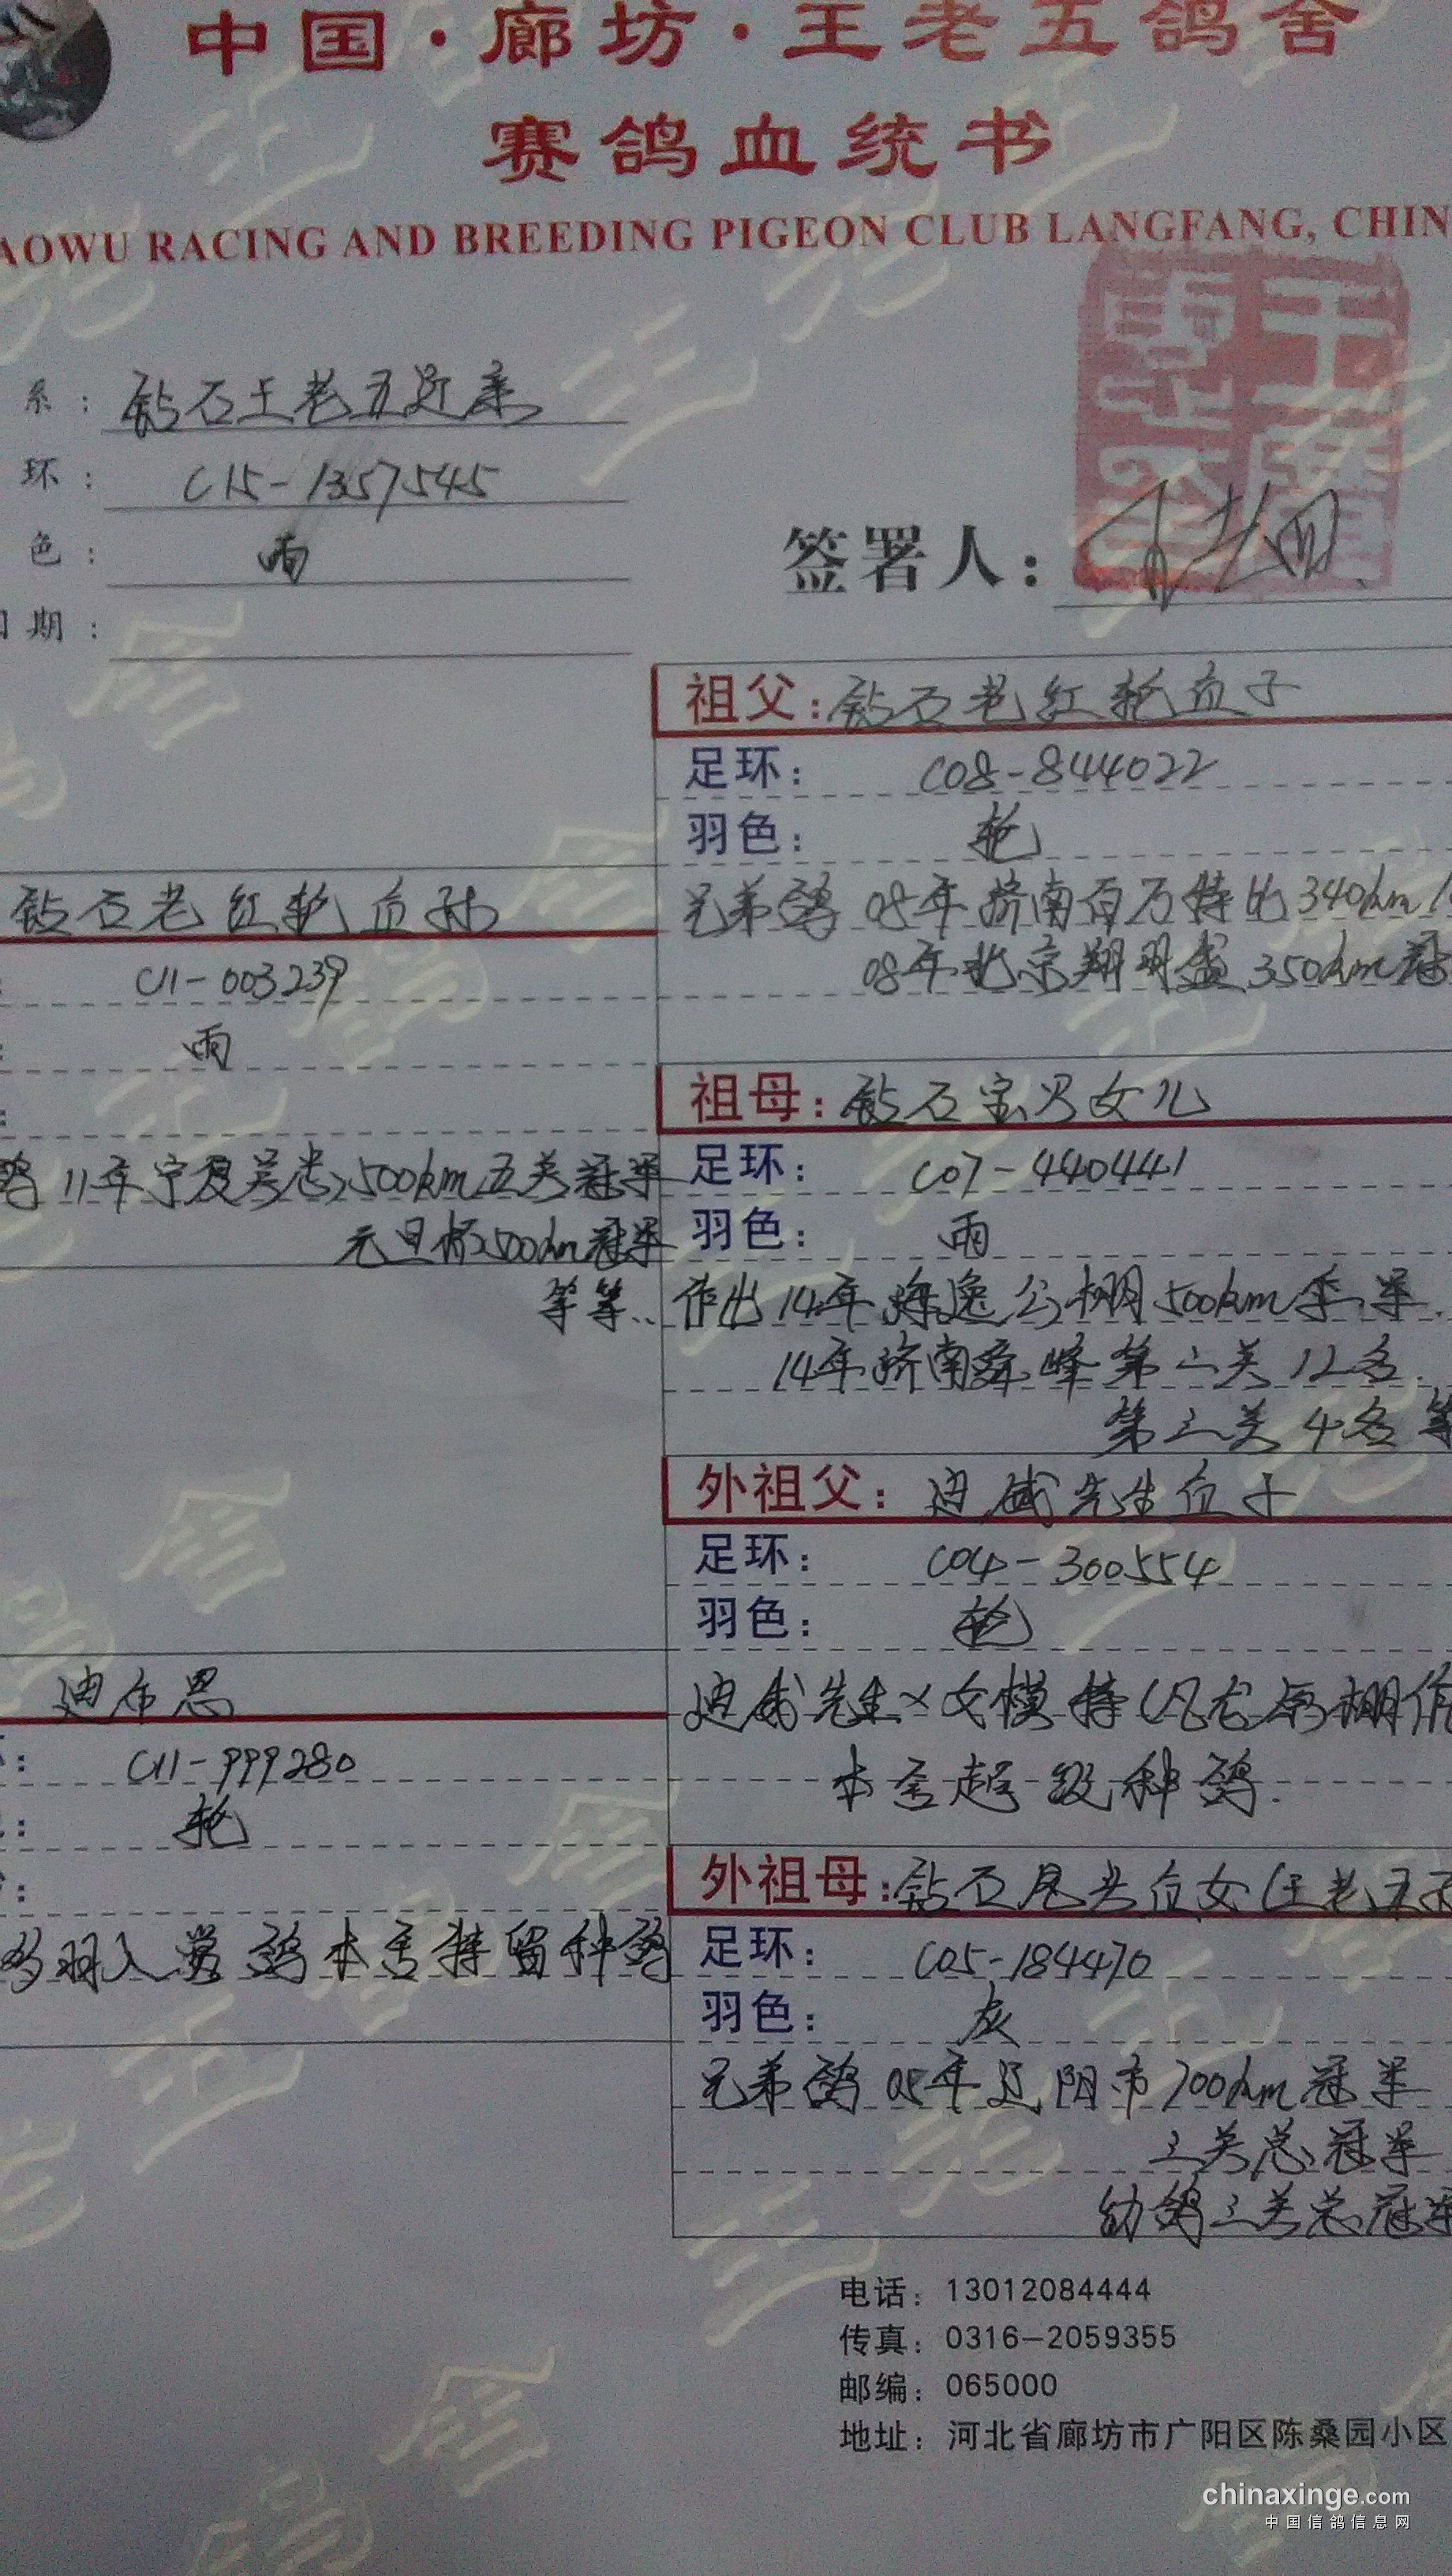 中国·廊坊·王老五鸽舍
赛鸽血统书
AOWU RACING AND BREEDING PIGEON CLUB LANGFANG, CHIN
系：钻石王老五近亲
环：C15-1357545
色：雨
期：
签署人：
祖父：钻石老红轮直子
足环：C08-844022
羽色：轮
兄弟鸽 08年济南百万特比340km
08年北京翔羽盛350km冠
钻石老红轮直孙
C11-003239
雨
鸽11年宁夏 500km五关冠军
元旦杯500km冠军
等等..
祖母：钻石宝贝女儿
足环：C07-440441
羽色：雨
作出14年 逸公棚500km季军.
14年济南舜峰第二关12名.
第三关4名等
外祖父：迪威先生直子
足环：C04-300554
羽色：轮
迪威先生×女模特
本舍超级种鸽.
迪布恩
环：C11-999280
轮
多羽入赏鸽本舍特留种鸽
外祖母：钻石尾岁直女(王老五
足环：C05-184470
羽色：灰
兄弟鸽05年辽阳市700km冠军
三关总冠军
幼鸽三关总冠军
电话：13012084444
传真：0316-2059355
邮编：065000
地址：河北省廊坊市广阳区陈桑园小区
chinaxinge.com
中国信鸽信息网